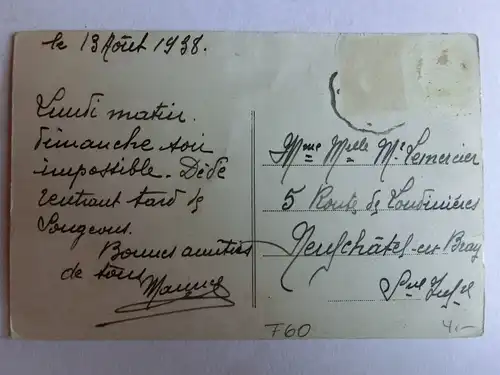 le 13 Août 1938.
Lundi matin.
dimanche soir
impossible. Dédé
rentrant tard de
Songeons.
Bonnes amitiés
de tous
Mme Melle Mr Lemercier
5 Route de Londinières
Neufchâtel-en Bray
Sne Infre
T60
4.-